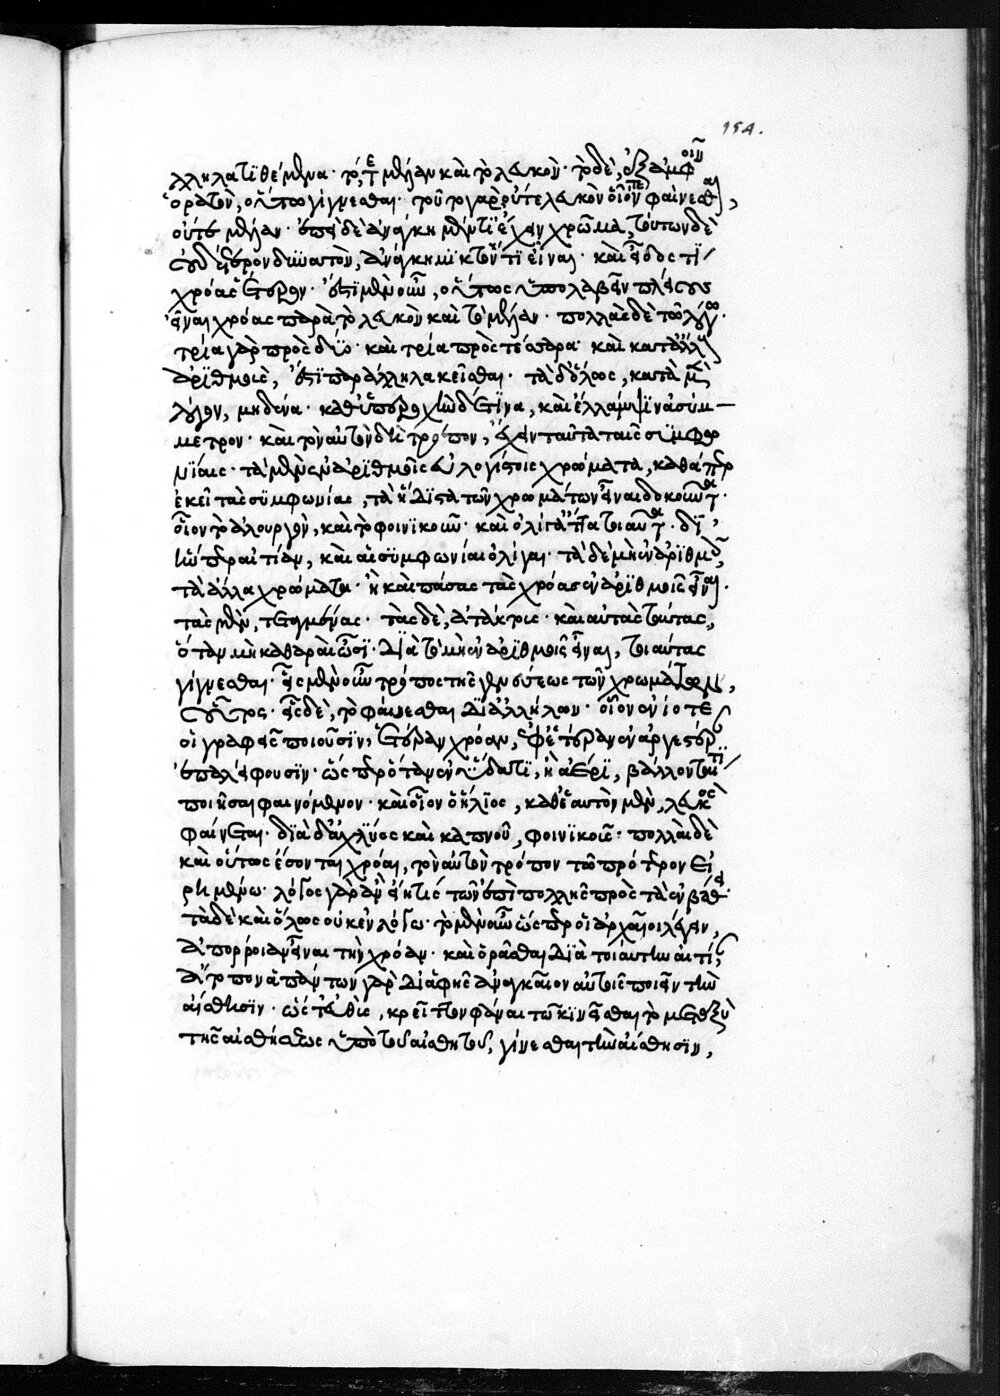 λληλα τιθέμενα· τό, τε μέλαν καὶ τὸ λευκὸν· τὸ δὲ, ἐξ ἀμφοῖν
ὁρατὸν, οὕτω γίγνεσθαι. τοῦτο γὰρ οὔτε λευκὸν οἷόν τε φαίνεσθαι,
οὔτε μέλαν· ἐπεὶ δὲ ἀνάγκη μέν τι ἔχειν χρῶμα, τούτων δὲ
οὐδέτερον δυνατὸν, ἀνάγκη μικτόν τι εἶναι· καὶ εἶδος τι
χρόας ἕτερον· ἔστι μὲν οὖν, οὕτως ὑπολαβεῖν πλείους
εἶναι χρόας παρὰ τὸ λευκὸν καὶ τὸ μέλαν· πολλὰς δὲ τῶ λόγω·
τρία γὰρ πρὸς δύο· καὶ τρία πρὸς τέσσαρα· καὶ κατ' ἄλλους
ἀριθμοὺς, ἔστι παράλληλα κεῖσθαι· τὰ δ' ὅλως, κατὰ μὲν
λόγον, μηδένα· καθ' ὑπεροχὴν δέ τινα, καὶ ἔλλειψιν ἀσύμ-
μετρον· καὶ τὸν αὐτὸν δὴ τρόπον, ἔχειν ταῦτα ταῖς συμφω
νίαις· τὰ μὲν ἐν ἀριθμοῖς εὐλογίστοις χρώματα, καθάπερ
ἐκεῖ τὰς συμφωνίας, τὰ ἥδιστα τῶν χρωμάτων εἶναι δοκοῦντα·
οἷον τὸ ἁλουργὸν, καὶ τὸ φοινικοῦν· καὶ ὀλίγ' ἄττα τοιαῦτα· δι'
ἥνπερ αἰτίαν, καὶ αἱ συμφωνίαι ὀλίγαι· τὰ δὲ μὴ ἐν ἀριθμοῖς,
τὰ ἄλλα χρώματα· ἢ καὶ πάσας τὰς χρόας ἐν ἀριθμοῖς εἶναι·
τὰς μὲν, τεταγμένας· τὰς δὲ, ἀτάκτους· καὶ αὐτὰς ταύτας,
ὅταν μὴ καθαραὶ ὦσι· διὰ τὸ μὴ ἐν ἀριθμοῖς εἶναι, τοιαύτας
γίγνεσθαι· εἷς μὲν οὖν τρόπος τῆς γενέσεως τῶν χρωμάτων,
οὗτος· εἷς δὲ, τὸ φαίνεσθαι δι' ἀλλήλων· οἷον ἐνίοτε
οἱ γραφεῖς ποιοῦσιν, ἑτέραν χρόαν, ἐφ' ἑτέραν ἐναργεστέραν
ἐπαλείφουσιν· ὥσπερ ὅταν ἐν ὕδατι, ἢ ἀέρι, βάλλονταί τι
ποιῆσαι φαινόμενον· καὶ οἷον ὁ ἥλιος, καθ' ἑαυτὸν μὲν, λευκὸς
φαίνεται· διὰ δ' ἀχλύος καὶ καπνοῦ, φοινικοῦς· πολλαὶ δὲ
καὶ οὕτως ἔσονται χρόαι, τὸν αὐτὸν τρόπον τῶ πρότερον εἰ
ρημένω· λόγος γὰρ ἂν εἴη τις τῶν ἐπιπολῆς πρὸς τὰ ἐν βάθει·
τὰ δὲ καὶ ὅλως οὐκ ἐν λόγω· τὸ μὲν οὖν ὥσπερ οἱ ἀρχαῖοι λέγειν,
ἀπορροίαν εἶναι τὴν χρόαν· καὶ ὁρᾶσθαι διὰ τοιαύτην αἰτίαν,
ἄτοπον· ἁπάντων γὰρ δι' ἁφῆς ἀναγκαῖον αὐτοῖς ποιεῖν τὴν
αἴσθησιν· ὥστ' εὐθὺς, κρεῖττον φάναι τῶ κινεῖσθαι τὸ μεταξὺ
τῆς αἰσθήσεως ὑπὸ τοῦ αἰσθητοῦ, γίνεσθαι τὴν αἴσθησιν,